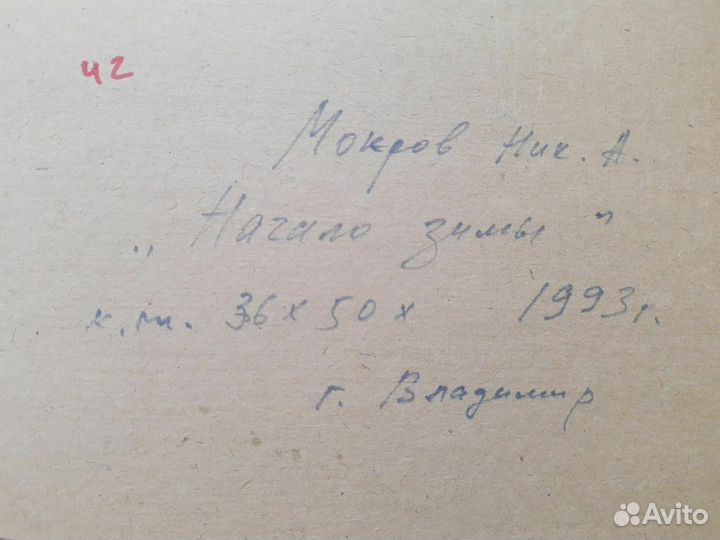 42
Мокров Ник. А.
„Начало зимы"
к.м. 36 х 50 х 1993 г.
г. Владимир
Avito